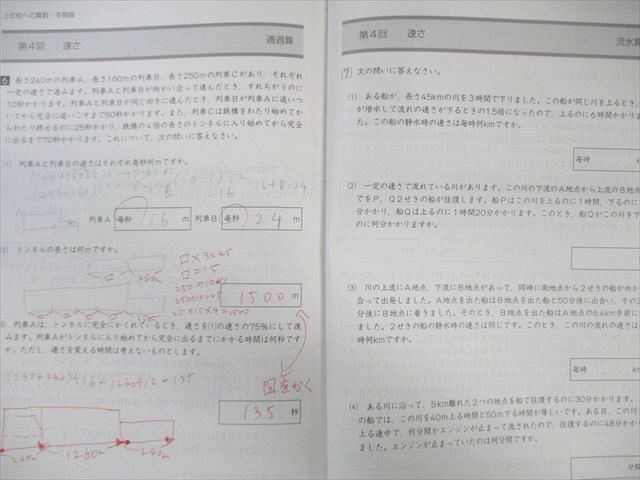 上位校への算数・冬期編
第4回 速さ
通過算
6 長さ240mの列車A、長さ160mの列車B、長さ250mの列車Cがあり、それぞれ
一定の速さで進みます。列車Aと列車Bが向かい合って進んだとき、すれちがうのに
10秒かかります。列車Aと列車Bが同じ向きに進んだとき、列車Bが列車Aに追いつ
いてから完全に追いこすまで50秒かかります。また、列車Cは鉄橋をわたり始めてか
らわたり終えるのに25秒かかり、鉄橋の4倍の長さのトンネルに入り始めてから完全
に出るまで70秒かかります。これについて、次の問いに答えなさい。
(1) 列車Aと列車Bの速さはそれぞれ毎秒何mですか。
=16
16+8=24
列車A 毎秒 16 m 列車B 毎秒 24 m
(2) トンネルの長さは何mですか。
□×3=45
□=15
250m
25×15×4=1500
1500 m
列車Aは、トンネルに完全にかくれているとき、速さを(1)の速さの75%にして進
みます。列車Aがトンネルに入り始めてから完全に出るまでにかかる時間は何秒です
か。ただし、速さを変える時間は考えないものとします。
(240+240)÷16+1260÷12=135
図をかく
135 秒
240m 1260m 240m
第4回 速さ
流水算
7 次の問いに答えなさい。
(1) ある船が、長さ45kmの川を3時間で下りました。この船が同じ川を上るときに
が増水して流れの速さが下るときの1.5倍になったので、上るのに6時間かかりま
た。この船の静水時の速さは毎時何kmですか。
毎時
(2) 一定の速さで流れている川があります。この川の下流のA地点から上流のB地点
でをP、Q2せきの船が往復します。船Pはこの川を上るのに1時間、下るのに
分かかり、船Qは上るのに1時間20分かかります。このとき、船Qがこの川を下
のに何分かかりますか。
(3) 川の上流にA地点、下流にB地点があって、同時に両地点から2せきの船が向か
合って出発しました。A地点を出た船はB地点を出た船と50分後に出会い、その
分後にB地点に着きました。そのとき、B地点を出た船はA地点の6.4km手前に
ました。2せきの船の静水時の速さは同じです。このとき、この川の流れの速さは
時何kmですか。
毎時
(4) ある川に沿って、5km離れた2つの地点を船で往復するのに30分かかります。
の船では、この川を40m上る時間と50m下る時間が等しいです。ある日、この川
上る途中で、何分間かエンジンが止まって流されたので、往復するのに48分かか
ました。エンジンが止まっていたのは何分間ですか。
分間